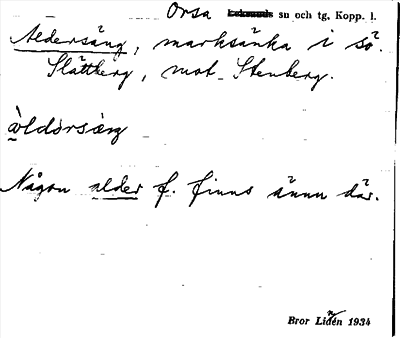 Orsa sn och tg, Kopp. l.
Aldersäng, marksänka i sö.
Slättberg, mot Stenberg.
àldərsæŋ
Någon alder f. finns ännu där.
Bror Lidén 1934